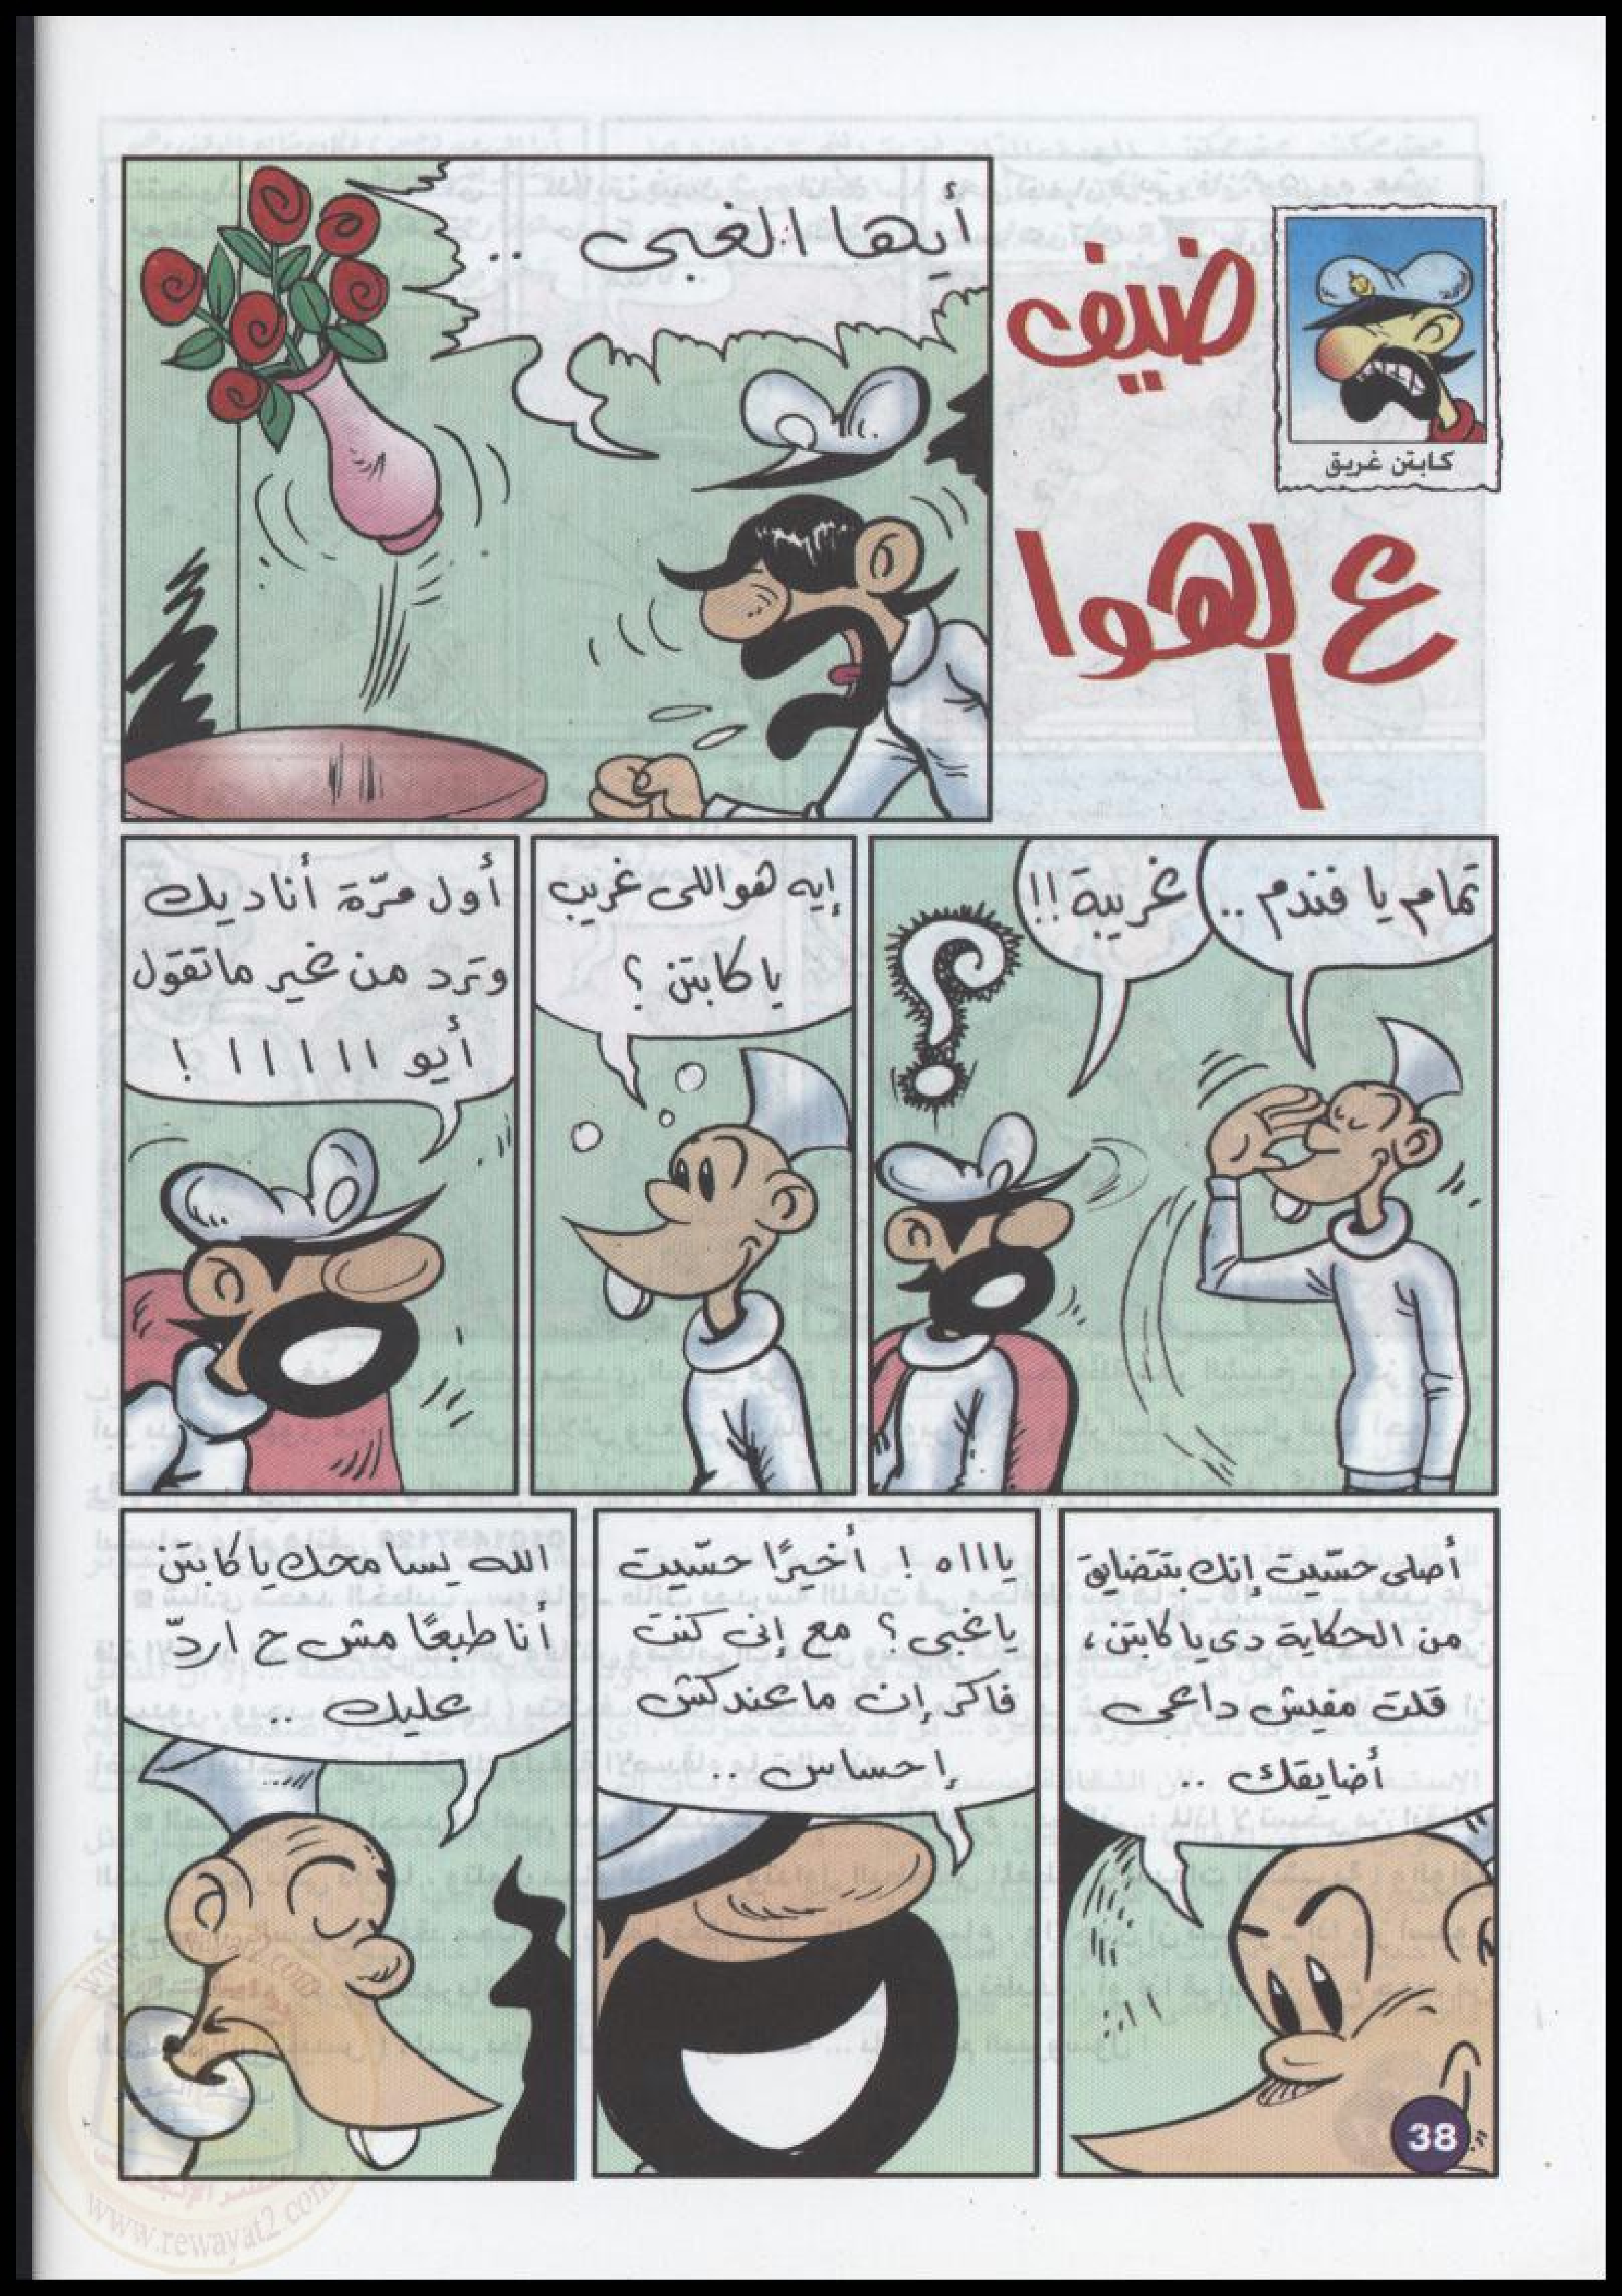 كابتن غريق
ضيف
ع الهوا
أيها الغبى ..
تمام يا فندم ..
غريبة !!
إيه هو اللى غريب
يا كابتن ؟
أول مرّة أناديك
وترد من غير ما تقول
أيو ا ا ا ا ا ا !
أصلى حسّيت إنك بتتضايق
من الحكاية دى يا كابتن ،
قلت مفيش داعى
أضايقك ..
يااااه ! أخيرًا حسّيت
يا غبى ؟ مع إنى كنت
فاكر إن ما عندكش
إحساس ..
الله يسامحك يا كابتن
أنا طبعًا مش ح اردّ
عليك ..
38
www.rewayat2.com